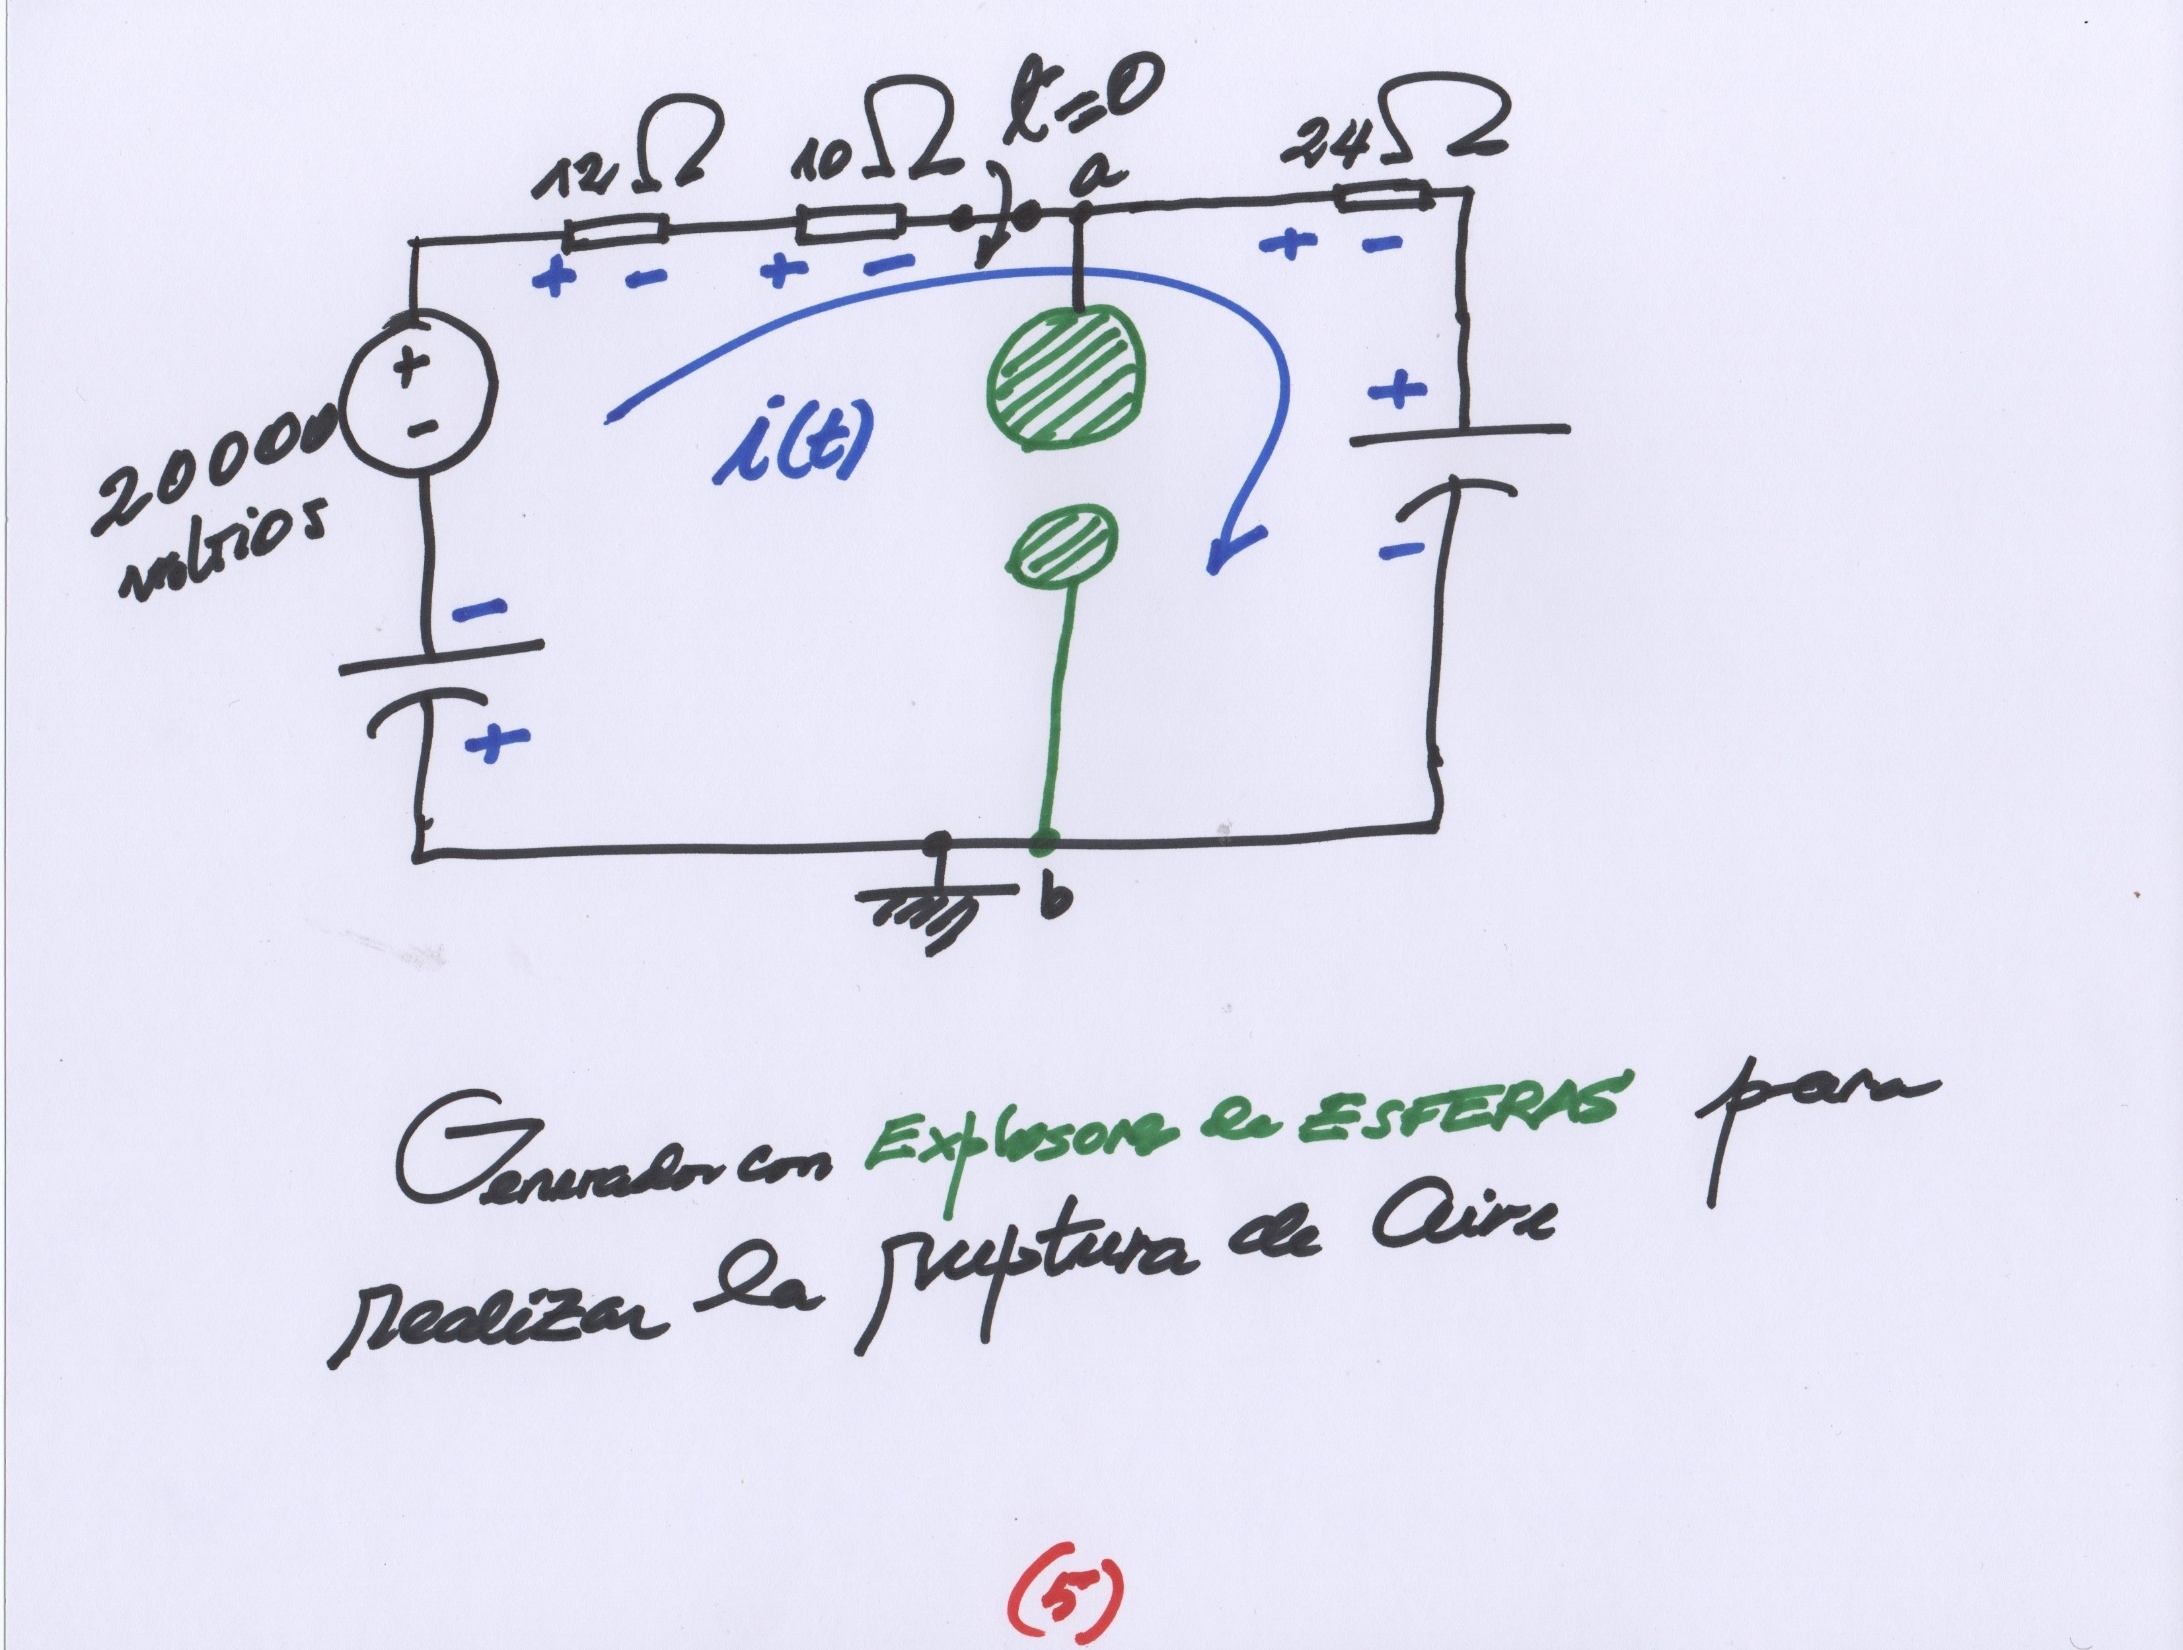 t=0
12Ω 10Ω a 24Ω
+ - + - + -
+
-
20000
voltios
i(t)
+
-
-
+
b
Generador con Explosora de ESFERAS para
realizar la ruptura de Aire
(5)